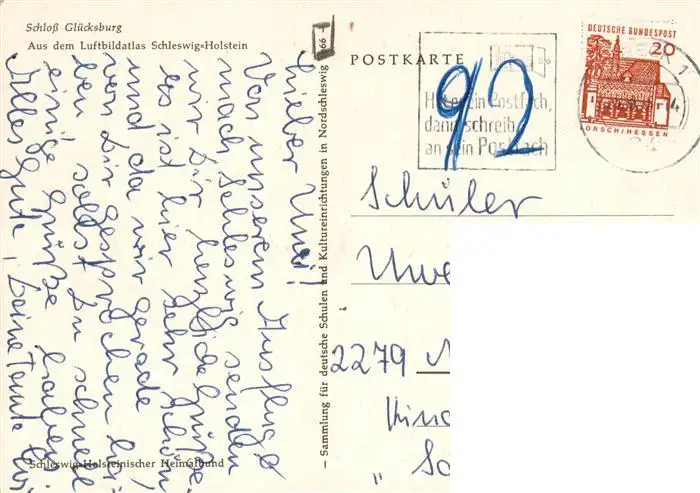 Schloß Glücksburg
Aus dem Luftbildatlas Schleswig-Holstein
Lieber Uwe!
Von unserem Ausflug
nach Schleswig senden
wir Dir herzliche Grüße
es ist hier sehr schön
und da wir gerade
von Dir gesprochen ha-
ben sollst Du schnell
einige Grüße haben
Alles Gute, Deine Tante
Schleswig-Holsteinischer Heimatbund
– Sammlung für deutsche Schulen und Kultureinrichtungen in Nordschleswig 1966 –
POSTKARTE
92
Hat er ein Postfach,
dann schreib
an sein Postfach
DEUTSCHE BUNDESPOST
20
LORSCH/HESSEN
Schüler
Uwe
2279
"